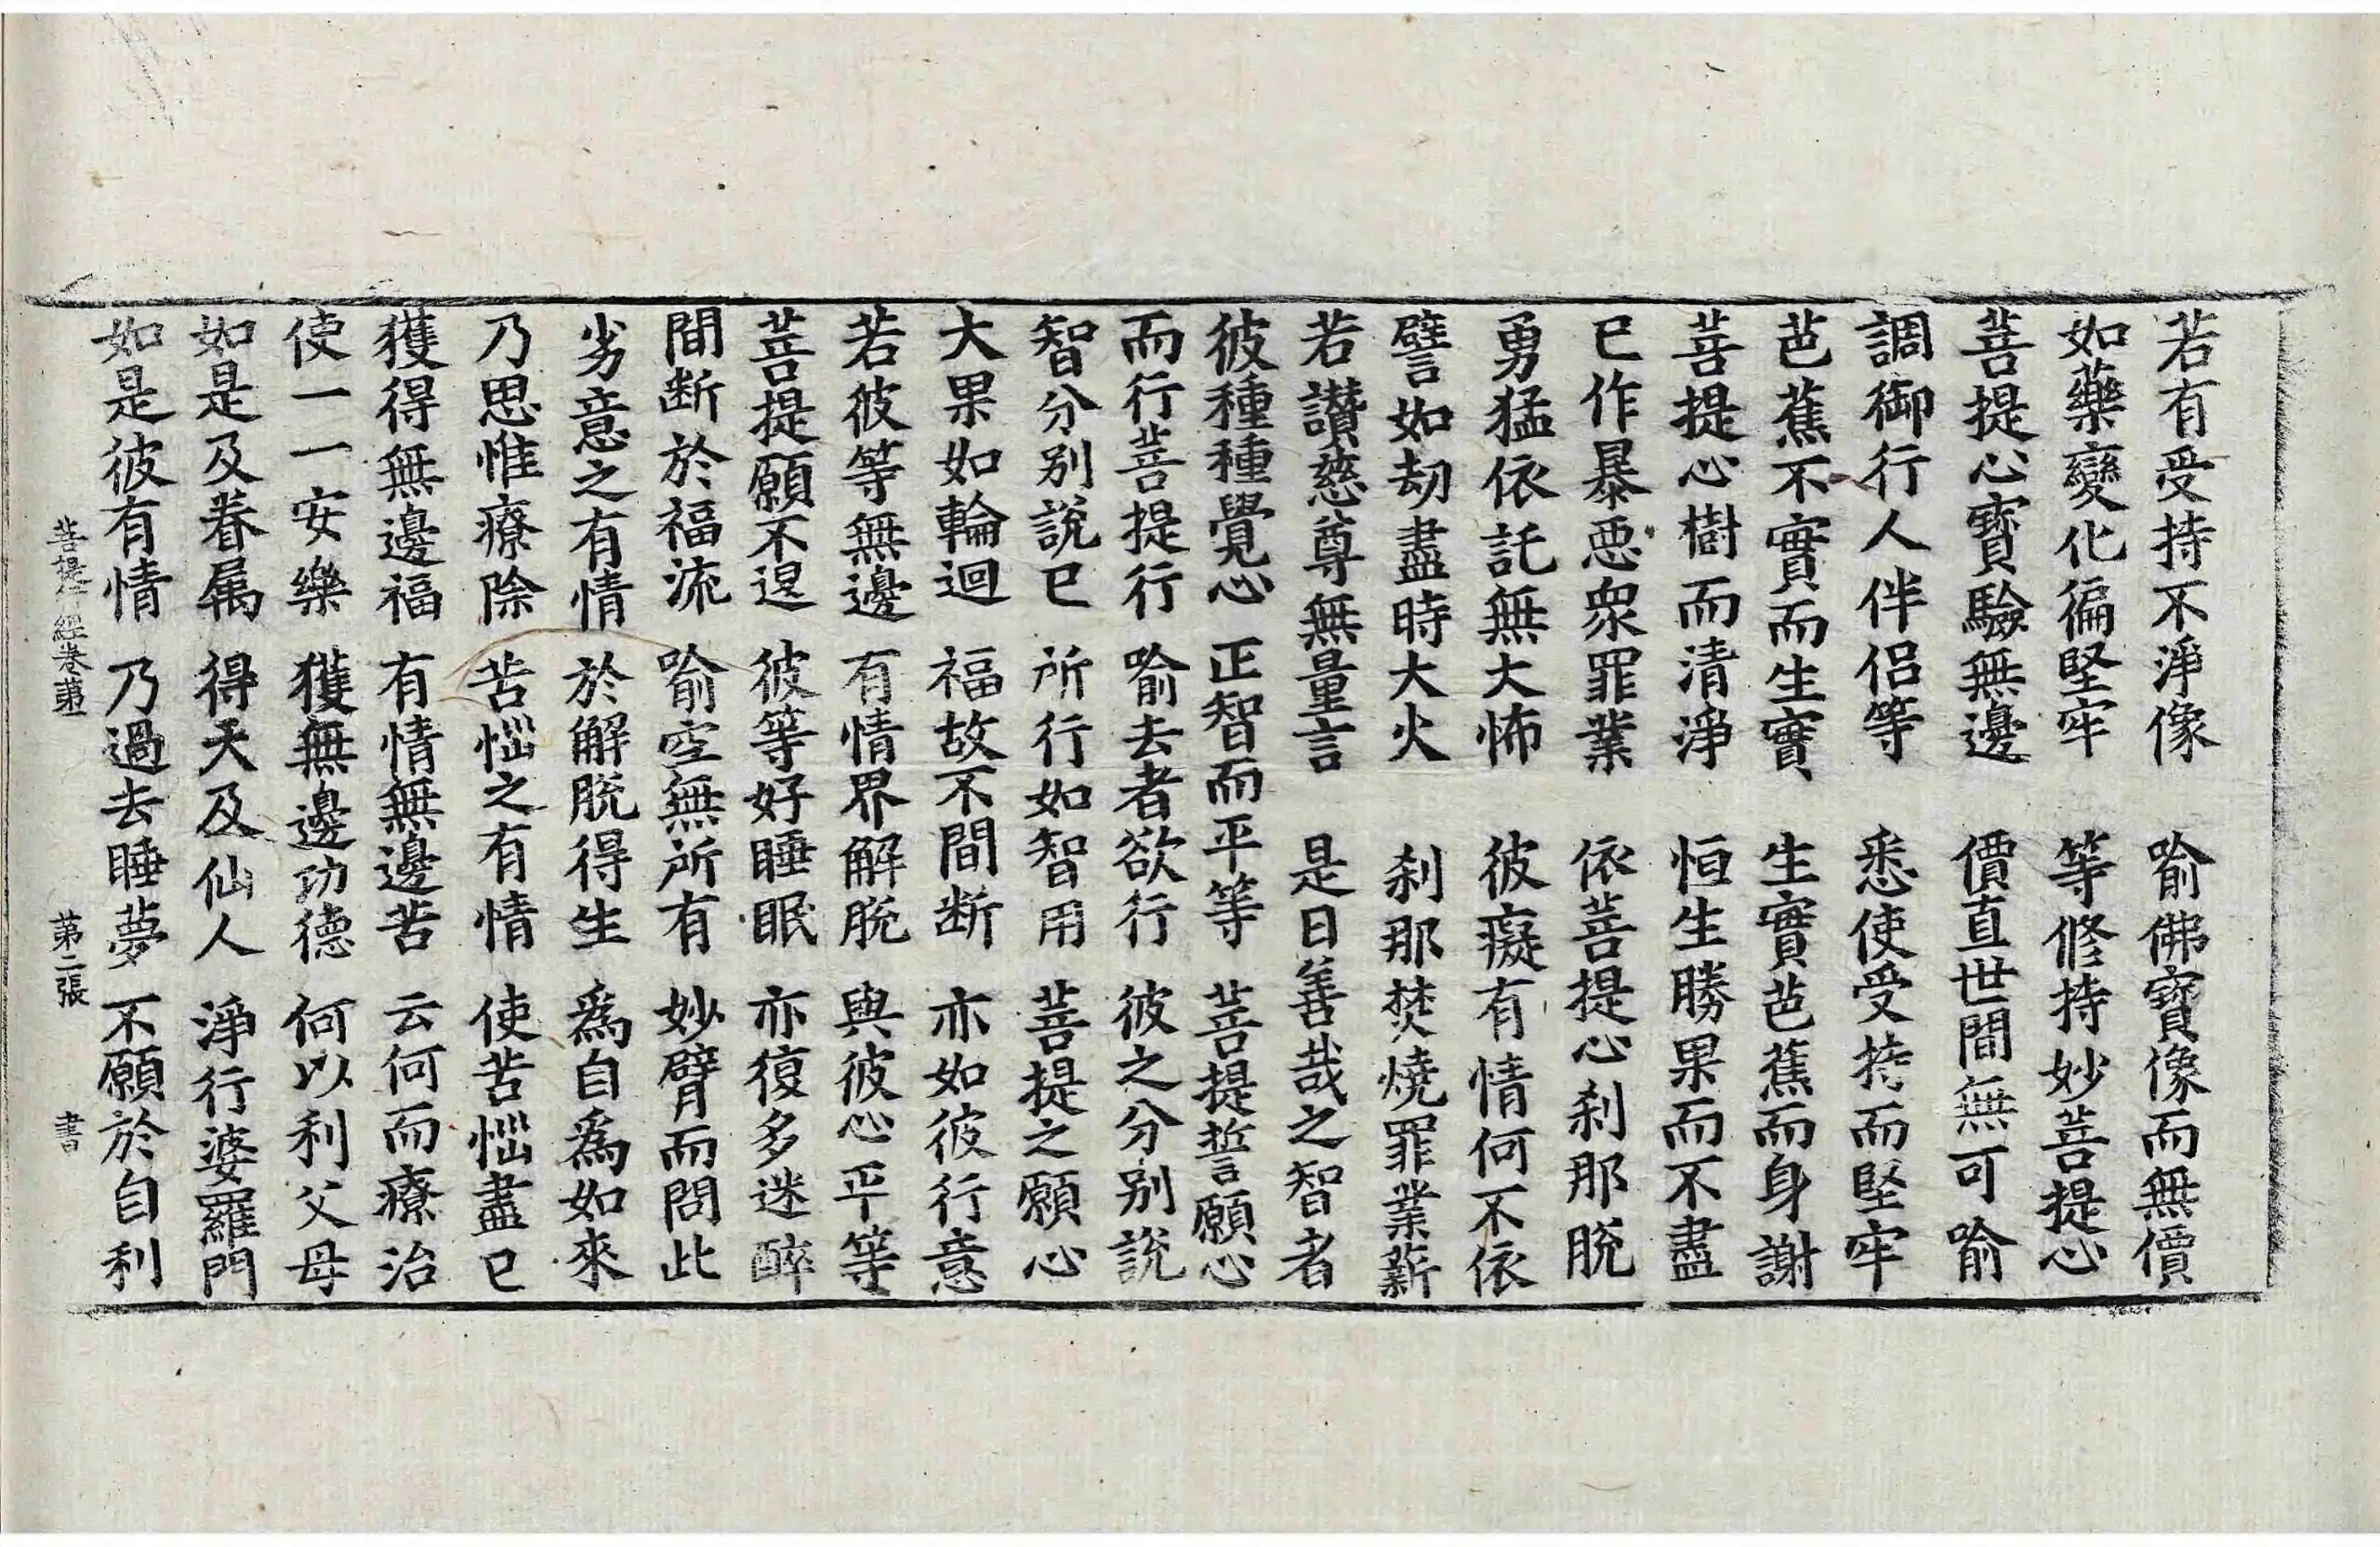 若有受持不淨像　喻佛寶像而無價
如藥變化徧堅牢　等修持妙菩提心
菩提心寶驗無邊　價直世間無可喻
調御行人伴侶等　悉使受持而堅牢
芭蕉不實而生實　生實芭蕉而身謝
菩提心樹而清淨　恒生勝果而不盡
已作暴惡衆罪業　依菩提心刹那脫
勇猛依託無大怖　彼癡有情何不依
譬如劫盡時大火　刹那焚燒罪業薪
若讃慈尊無量言　是日善哉之智者
彼種種覺心　正智而平等　菩提誓願心
而行菩提行　喻去者欲行　彼之分別說
智分別說已　所行如智用　菩提之願心
大果如輪迴　福故不間断　亦如彼行意
若彼等無邊　有情界解脫　與彼心平等
菩提願不退　彼等好睡眠　亦復多迷醉
間断於福流　喻空無所有　妙臂而問此
劣意之有情　於解脫得生　爲自爲如來
乃思惟療除　苦惱之有情　使苦惱盡已
獲得無邊福　有情無邊苦　云何而療治
使一一安樂　獲無邊功德　何以利父母
如是及眷属　得天及仙人　淨行婆羅門
如是彼有情　乃過去睡夢　不願於自利
菩提行經卷第一　第二張　書